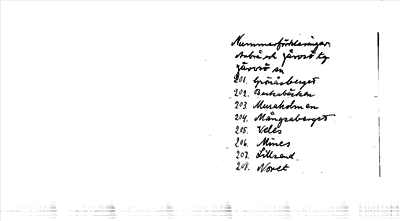 Nummerförklaringar.
Arbrå och Järvsö tg
Järvsö sn
201. Gröntåsberget
202. Backabäcken
203. Muraholman
204. Mångsaberget
205. Veles
206. Mines
207. Lillsand
208. Noret